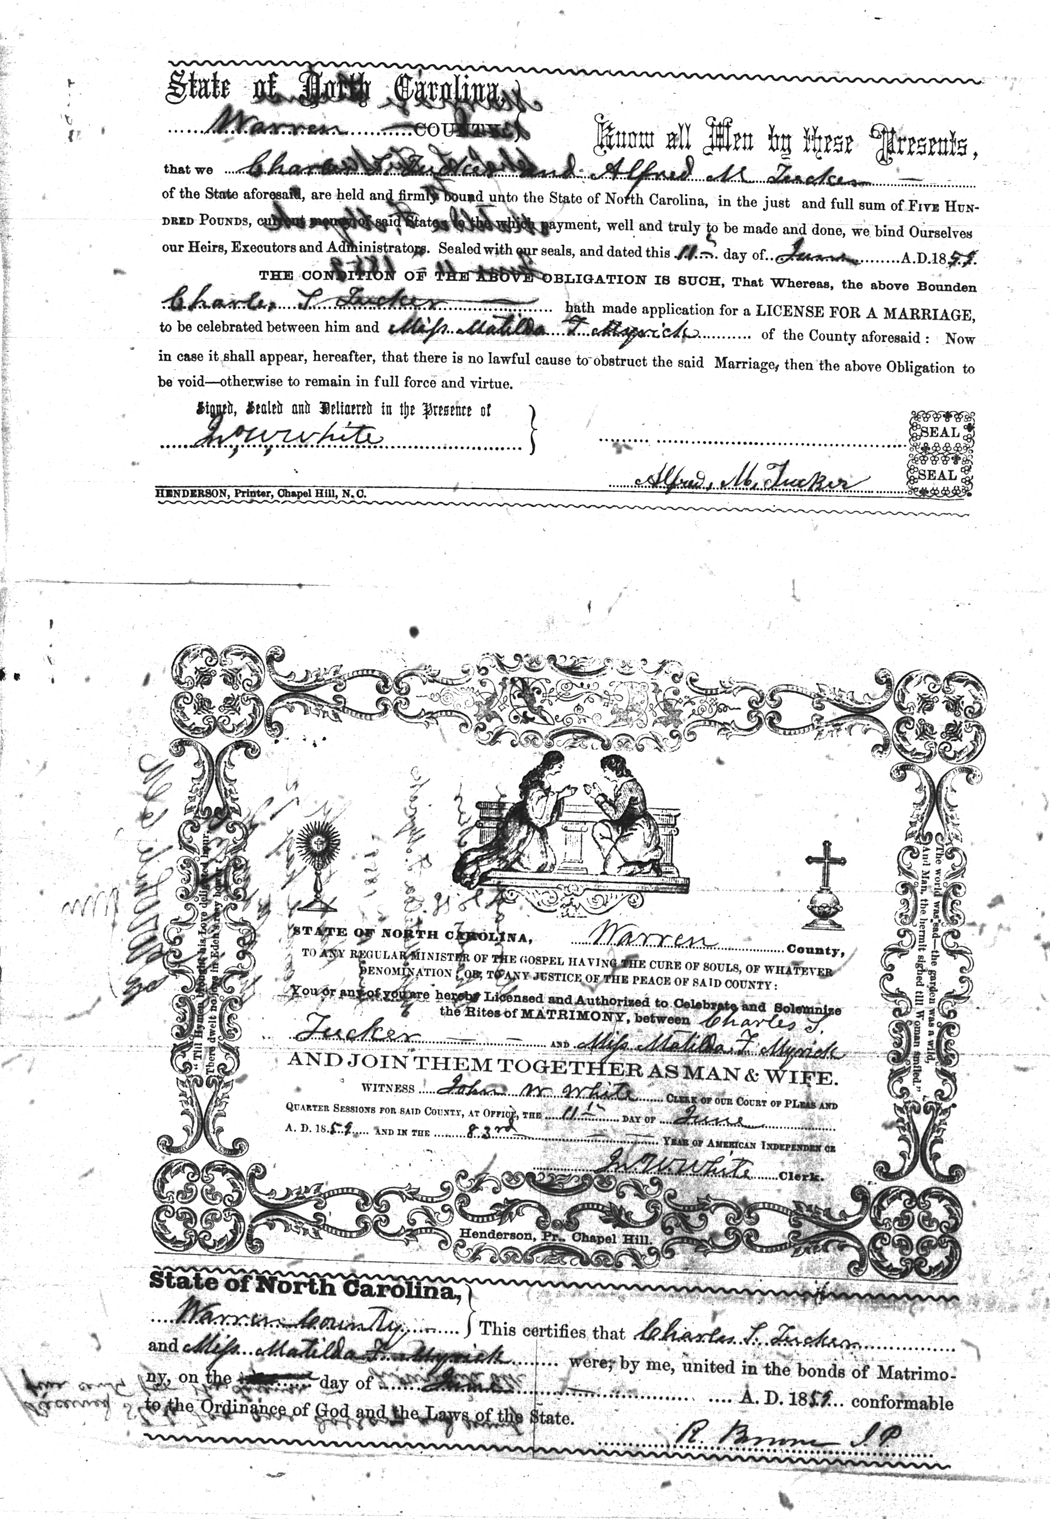 State of North Carolina,
Warren COUNTY
Know all Men by these Presents,
that we Charles T. Tucker and Alfred M Tucker
of the State aforesaid, are held and firmly bound unto the State of North Carolina, in the just and full sum of FIVE HUN-
DRED POUNDS, current money of said State, to the which payment, well and truly to be made and done, we bind Ourselves
our Heirs, Executors and Administrators. Sealed with our seals, and dated this 11th day of June A.D. 1859.
THE CONDITION OF THE ABOVE OBLIGATION IS SUCH, That Whereas, the above Bounden
Charles T Tucker hath made application for a LICENSE FOR A MARRIAGE,
to be celebrated between him and Miss Matilda F Myrick of the County aforesaid: Now
in case it shall appear, hereafter, that there is no lawful cause to obstruct the said Marriage, then the above Obligation to
be void—otherwise to remain in full force and virtue.
Signed, Sealed and Delivered in the Presence of
Jno W White
SEAL
SEAL
Alfred, M. Tucker
HENDERSON, Printer, Chapel Hill, N. C.
"The world was sad—the garden was a wild,
And Man, the hermit sighed till Woman smiled."
STATE OF NORTH CAROLINA, Warren County,
TO ANY REGULAR MINISTER OF THE GOSPEL HAVING THE CURE OF SOULS, OF WHATEVER
DENOMINATION, OR, TO ANY JUSTICE OF THE PEACE OF SAID COUNTY:
You or any of you are hereby Licensed and Authorized to Celebrate and Solemnize
the Rites of MATRIMONY, between Charles T.
Tucker AND Miss Matilda F Myrick
AND JOIN THEM TOGETHER AS MAN & WIFE.
WITNESS John W White CLERK OF OUR COURT OF PLEAS AND
QUARTER SESSIONS FOR SAID COUNTY, AT OFFICE, THE 11th DAY OF June
A. D. 1859 AND IN THE 83rd YEAR OF AMERICAN INDEPENDENCE
Jno W White Clerk.
Henderson, Pr. Chapel Hill.
State of North Carolina,
Warren County This certifies that Charles T. Tucker
and Miss Matilda F Myrick were, by me, united in the bonds of Matrimo-
ny, on the day of June A. D. 1859 conformable
to the Ordinance of God and the Laws of the State.
R. Brown J P